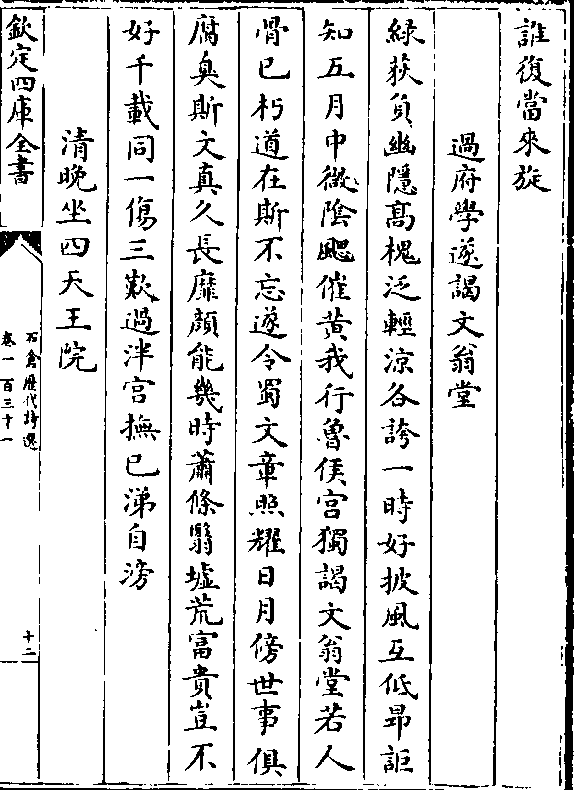 誰復當來旋
過府學遂謁文翁堂
緑荻負幽隠髙槐泛輕涼各誇一時好披風互低昻詎
知五月中微隂颸催黄我行魯侯宫獨謁文翁堂若人
骨已朽道在斯不忘遂令蜀文章照耀日月傍世事俱
腐臭斯文真久長靡顔能幾時蕭條翳墟荒富貴豈不
好千載同一傷三歎過泮宫撫已涕自滂
清晚坐四天王院
欽定四庫全書
石倉歴代詩選
卷一百三十一
十二